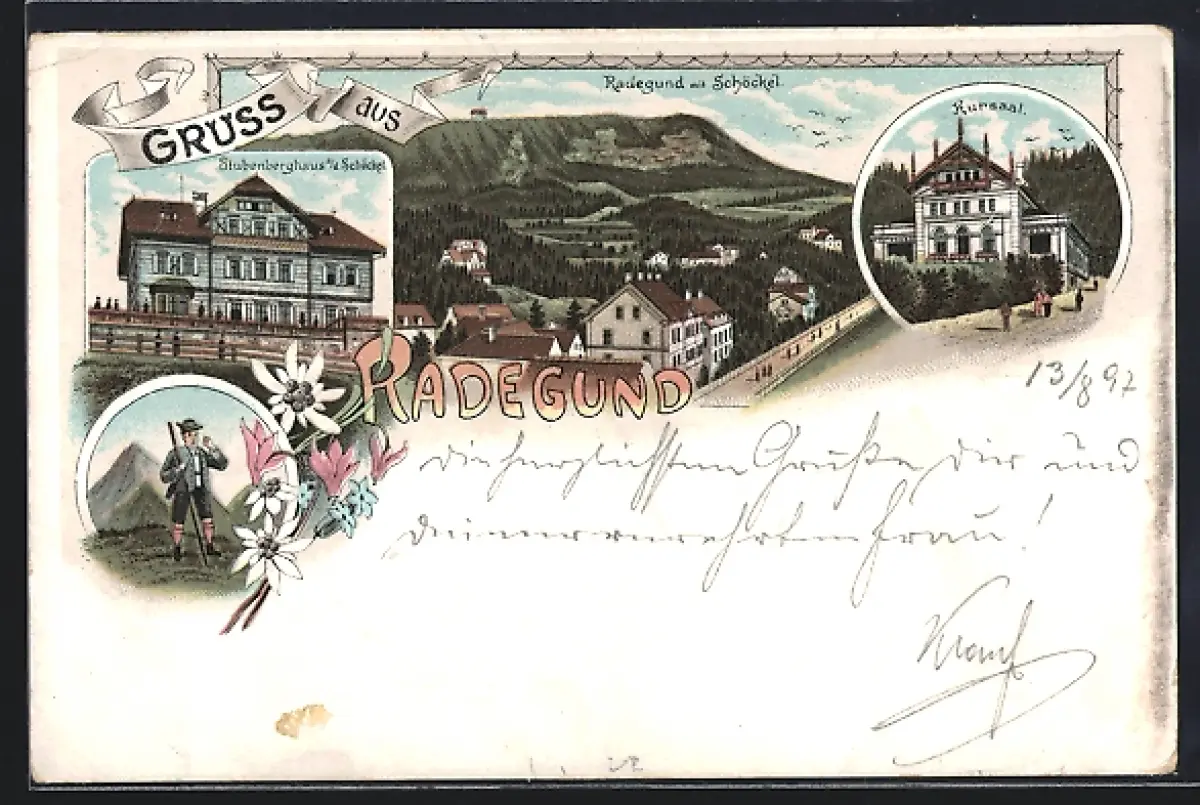 GRUSS aus
Radegund mit Schöckel.
Kursaal.
Stubenberghaus a/d Schöckel
RADEGUND
13/8 97
die herzlichsten Grüße dir und
deiner verehrten Frau!